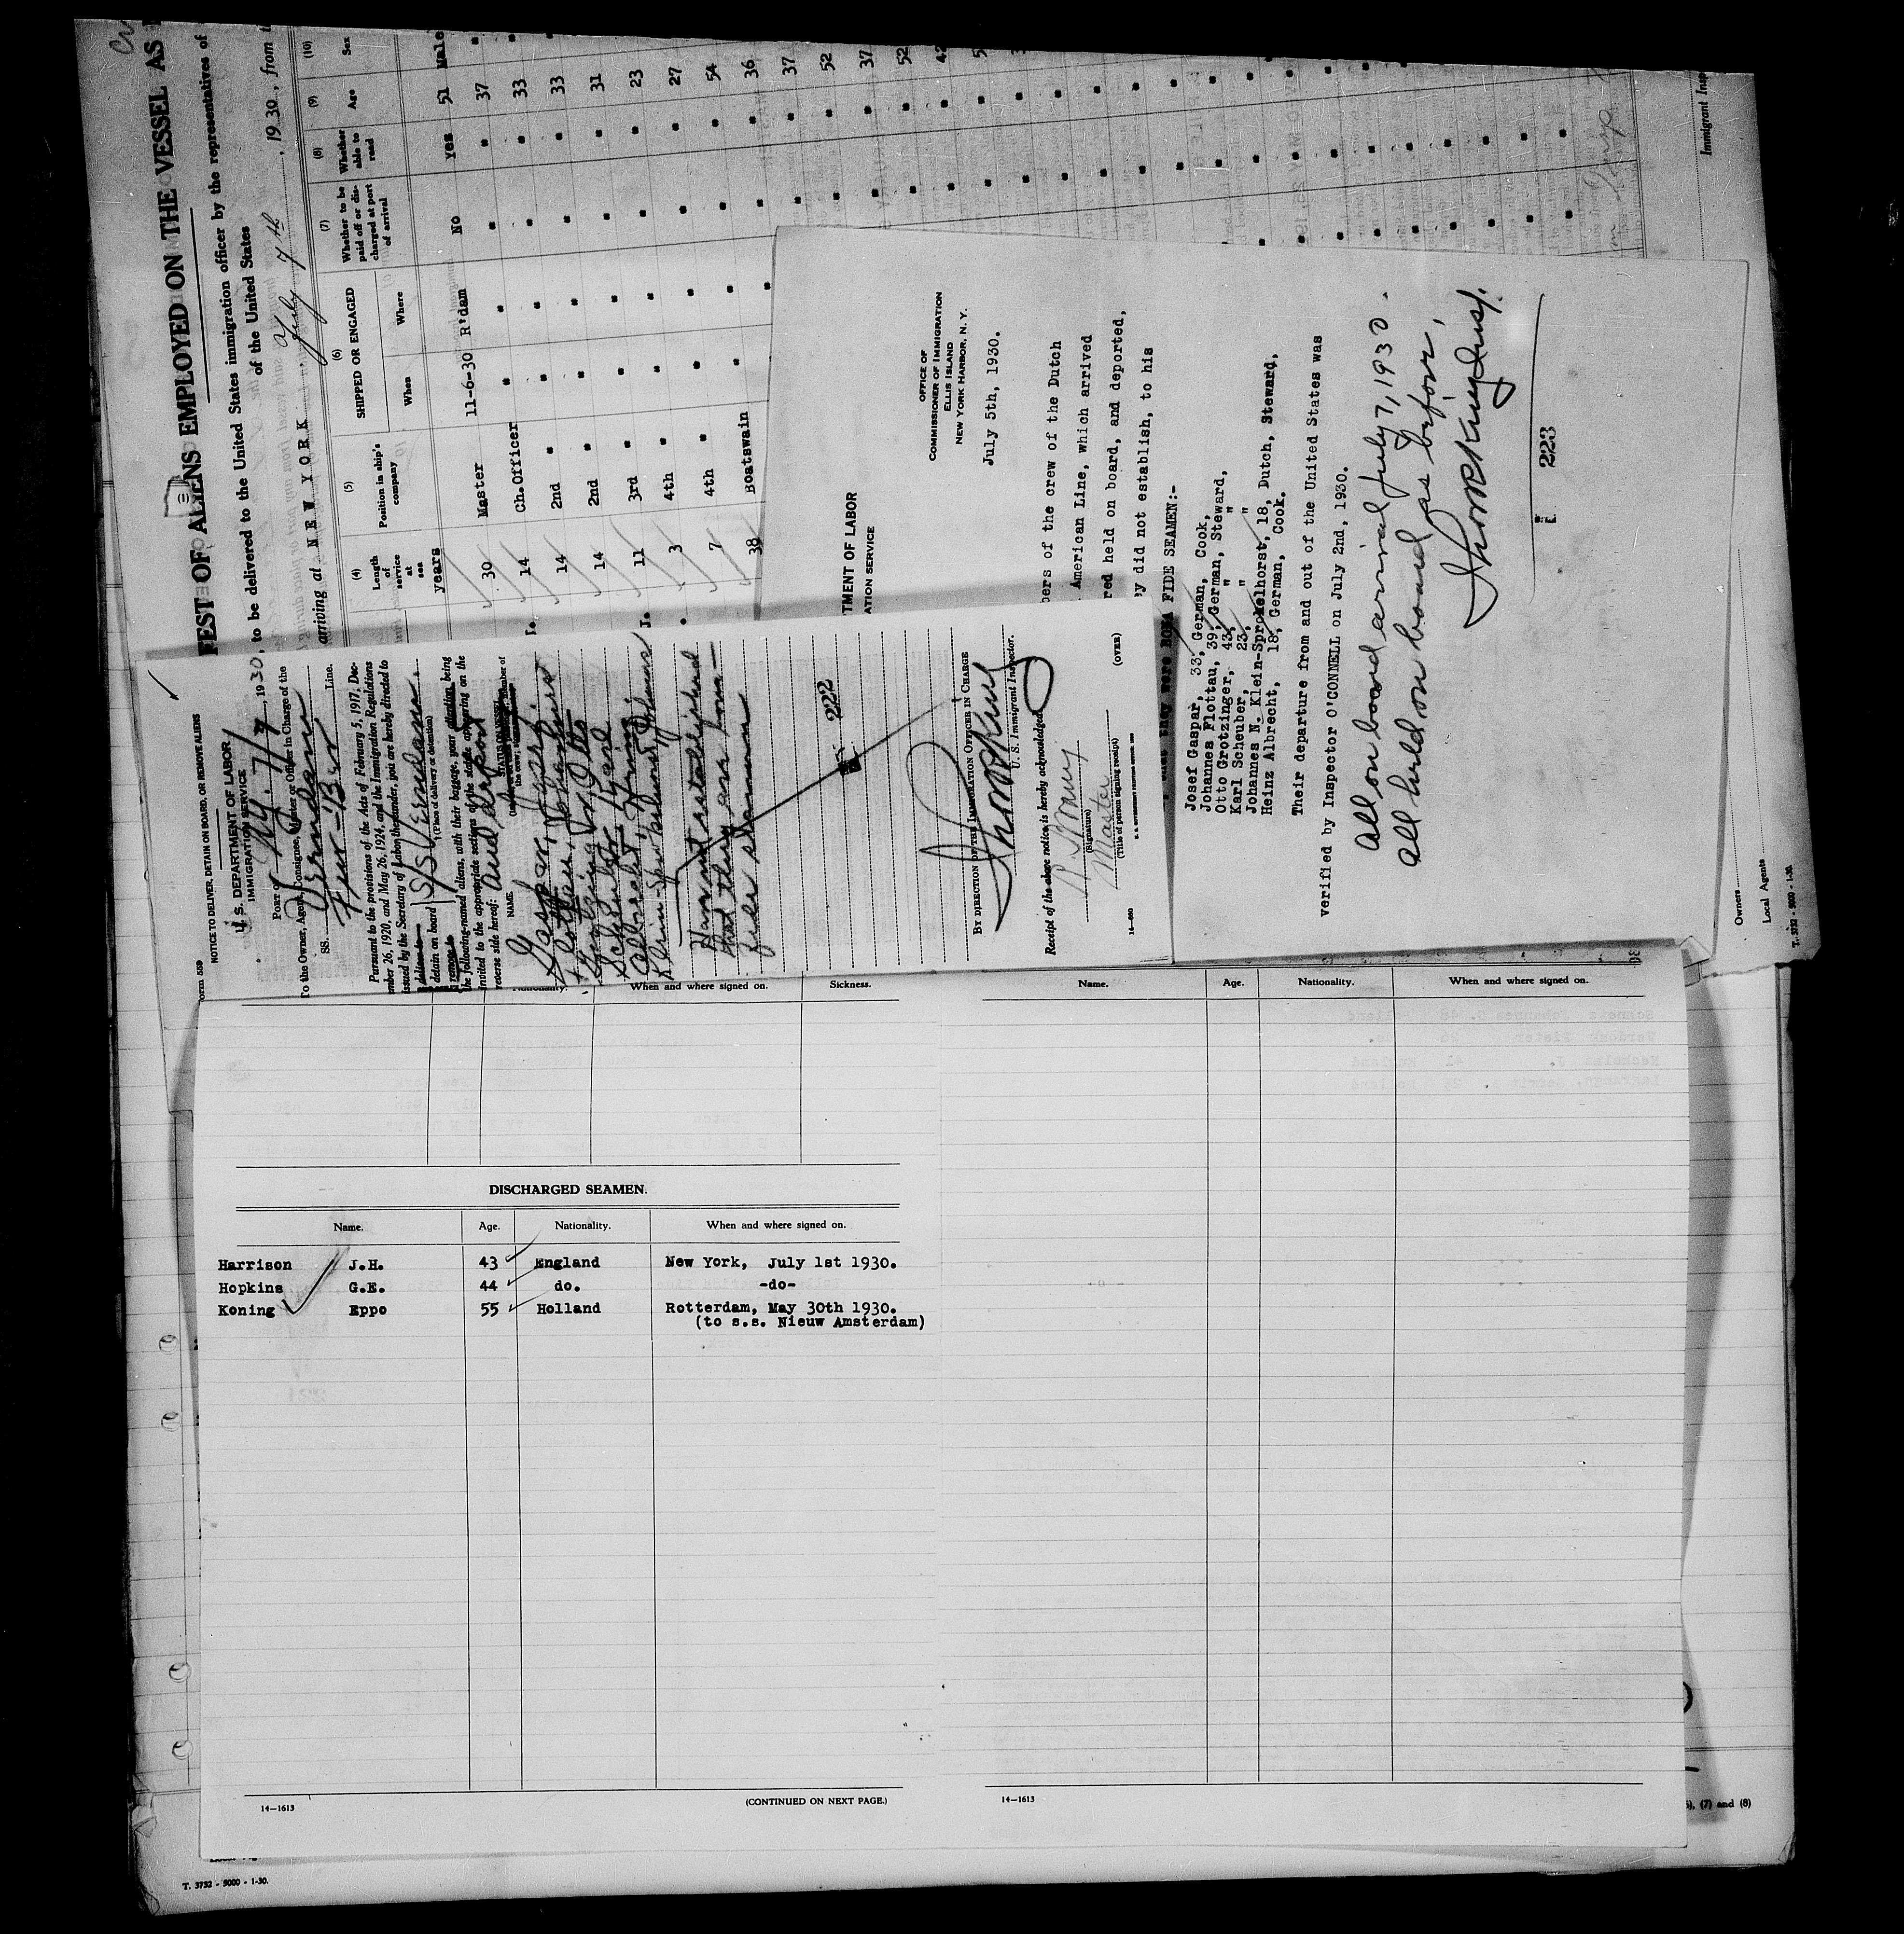 FEST OF ALIENS EMPLOYED ON THE VESSEL AS
, to be delivered to the United States immigration officer by the representatives of
of the United States
arriving at NEW YORK July 7th, 1930, from
(4) (5) (6) (7) (8) (9) (10)
Length of service at sea
Position in ship's company
SHIPPED OR ENGAGED
When Where
Whether to be paid off or discharged at port of arrival
Whether able to read
Age
Sex
years
30 Master 11-6-30 R'dam No Yes 51 Male
14 Ch.Officer " " " " 37 "
14 2nd " " " " " 33 "
14 2nd " " " " " 33
11 3rd " " " " " 31
3 4th " " " " " 23
7 4th " " " " " 27
38 Boatswain " " " " 54
36
37
52
37
52
42
Immigrant Insp
Owners
Local Agents
T. 3732 - 5000 - 1-30.
TMENT OF LABOR
ATION SERVICE
OFFICE OF
COMMISSIONER OF IMMIGRATION
ELLIS ISLAND
NEW YORK HARBOR, N. Y.
July 5th, 1930.
bers of the crew of the Dutch
American Line, which arrived
red held on board, and deported,
ey did not establish, to his
that they were BONA FIDE SEAMEN:-
Josef Gaspar, 33, German, Cook,
Johannes Flottau, 39, German, Steward,
Otto Grotzinger, 43, " "
Karl Scheuber, 23, " "
Johannes N. Klein-Sprokelhorst, 18, Dutch, Steward,
Heinz Albrecht, 18, German, Cook.
Their departure from and out of the United States was
verified by Inspector O'CONNELL on July 2nd, 1930.
All on board arrival July 7, 1930.
All held on board as before.
223
orm 559
NOTICE TO DELIVER, DETAIN ON BOARD, OR REMOVE ALIENS
U. S. DEPARTMENT OF LABOR
IMMIGRATION SERVICE
Port of N.Y. 7/7, 1930
To the Owner, Agent, Consignee, Master or Officer in Charge of the
Veendam
SS. Line.
Pursuant to the provisions of the Acts of February 5, 1917, Dec-
ember 26, 1920, and May 26, 1924, and the Immigration Regulations
issued by the Secretary of Labor thereunder, you are hereby directed to
deliver to
detain on board S/S Veendam.
remove to † (Place of delivery or detention)
the following-named aliens, with their baggage, your attention being
invited to the appropriate sections of the statute appearing on the
reverse side hereof: and deport
NAME
Gaspar, Josef
Flottau, Johannes
Grotzing Otto
Scheuber Karl
Albrecht, Heinz
Klein-Sprokelhorst, Johannes
Have not established
that they are bona
fide seamen
222
BY DIRECTION OF THE IMMIGRATION OFFICER IN CHARGE
U. S. Immigrant Inspector.
Receipt of the above notice is hereby acknowledged
(Signature)
Master
(Title of person signing receipt)
14-660
(OVER)
Nationality. When and where signed on. Sickness.
Name. Age. Nationality. When and where signed on.
DISCHARGED SEAMEN.
Name. Age. Nationality. When and where signed on.
Harrison J.H. 43 England New York, July 1st 1930.
Hopkins G.E. 44 do. -do-
Koning Eppo 55 Holland Rotterdam, May 30th 1930.
(to s.s. Nieuw Amsterdam)
14-1613 (CONTINUED ON NEXT PAGE.)
14-1613
(7) and (8)
T. 3732 - 5000 - 1-30.